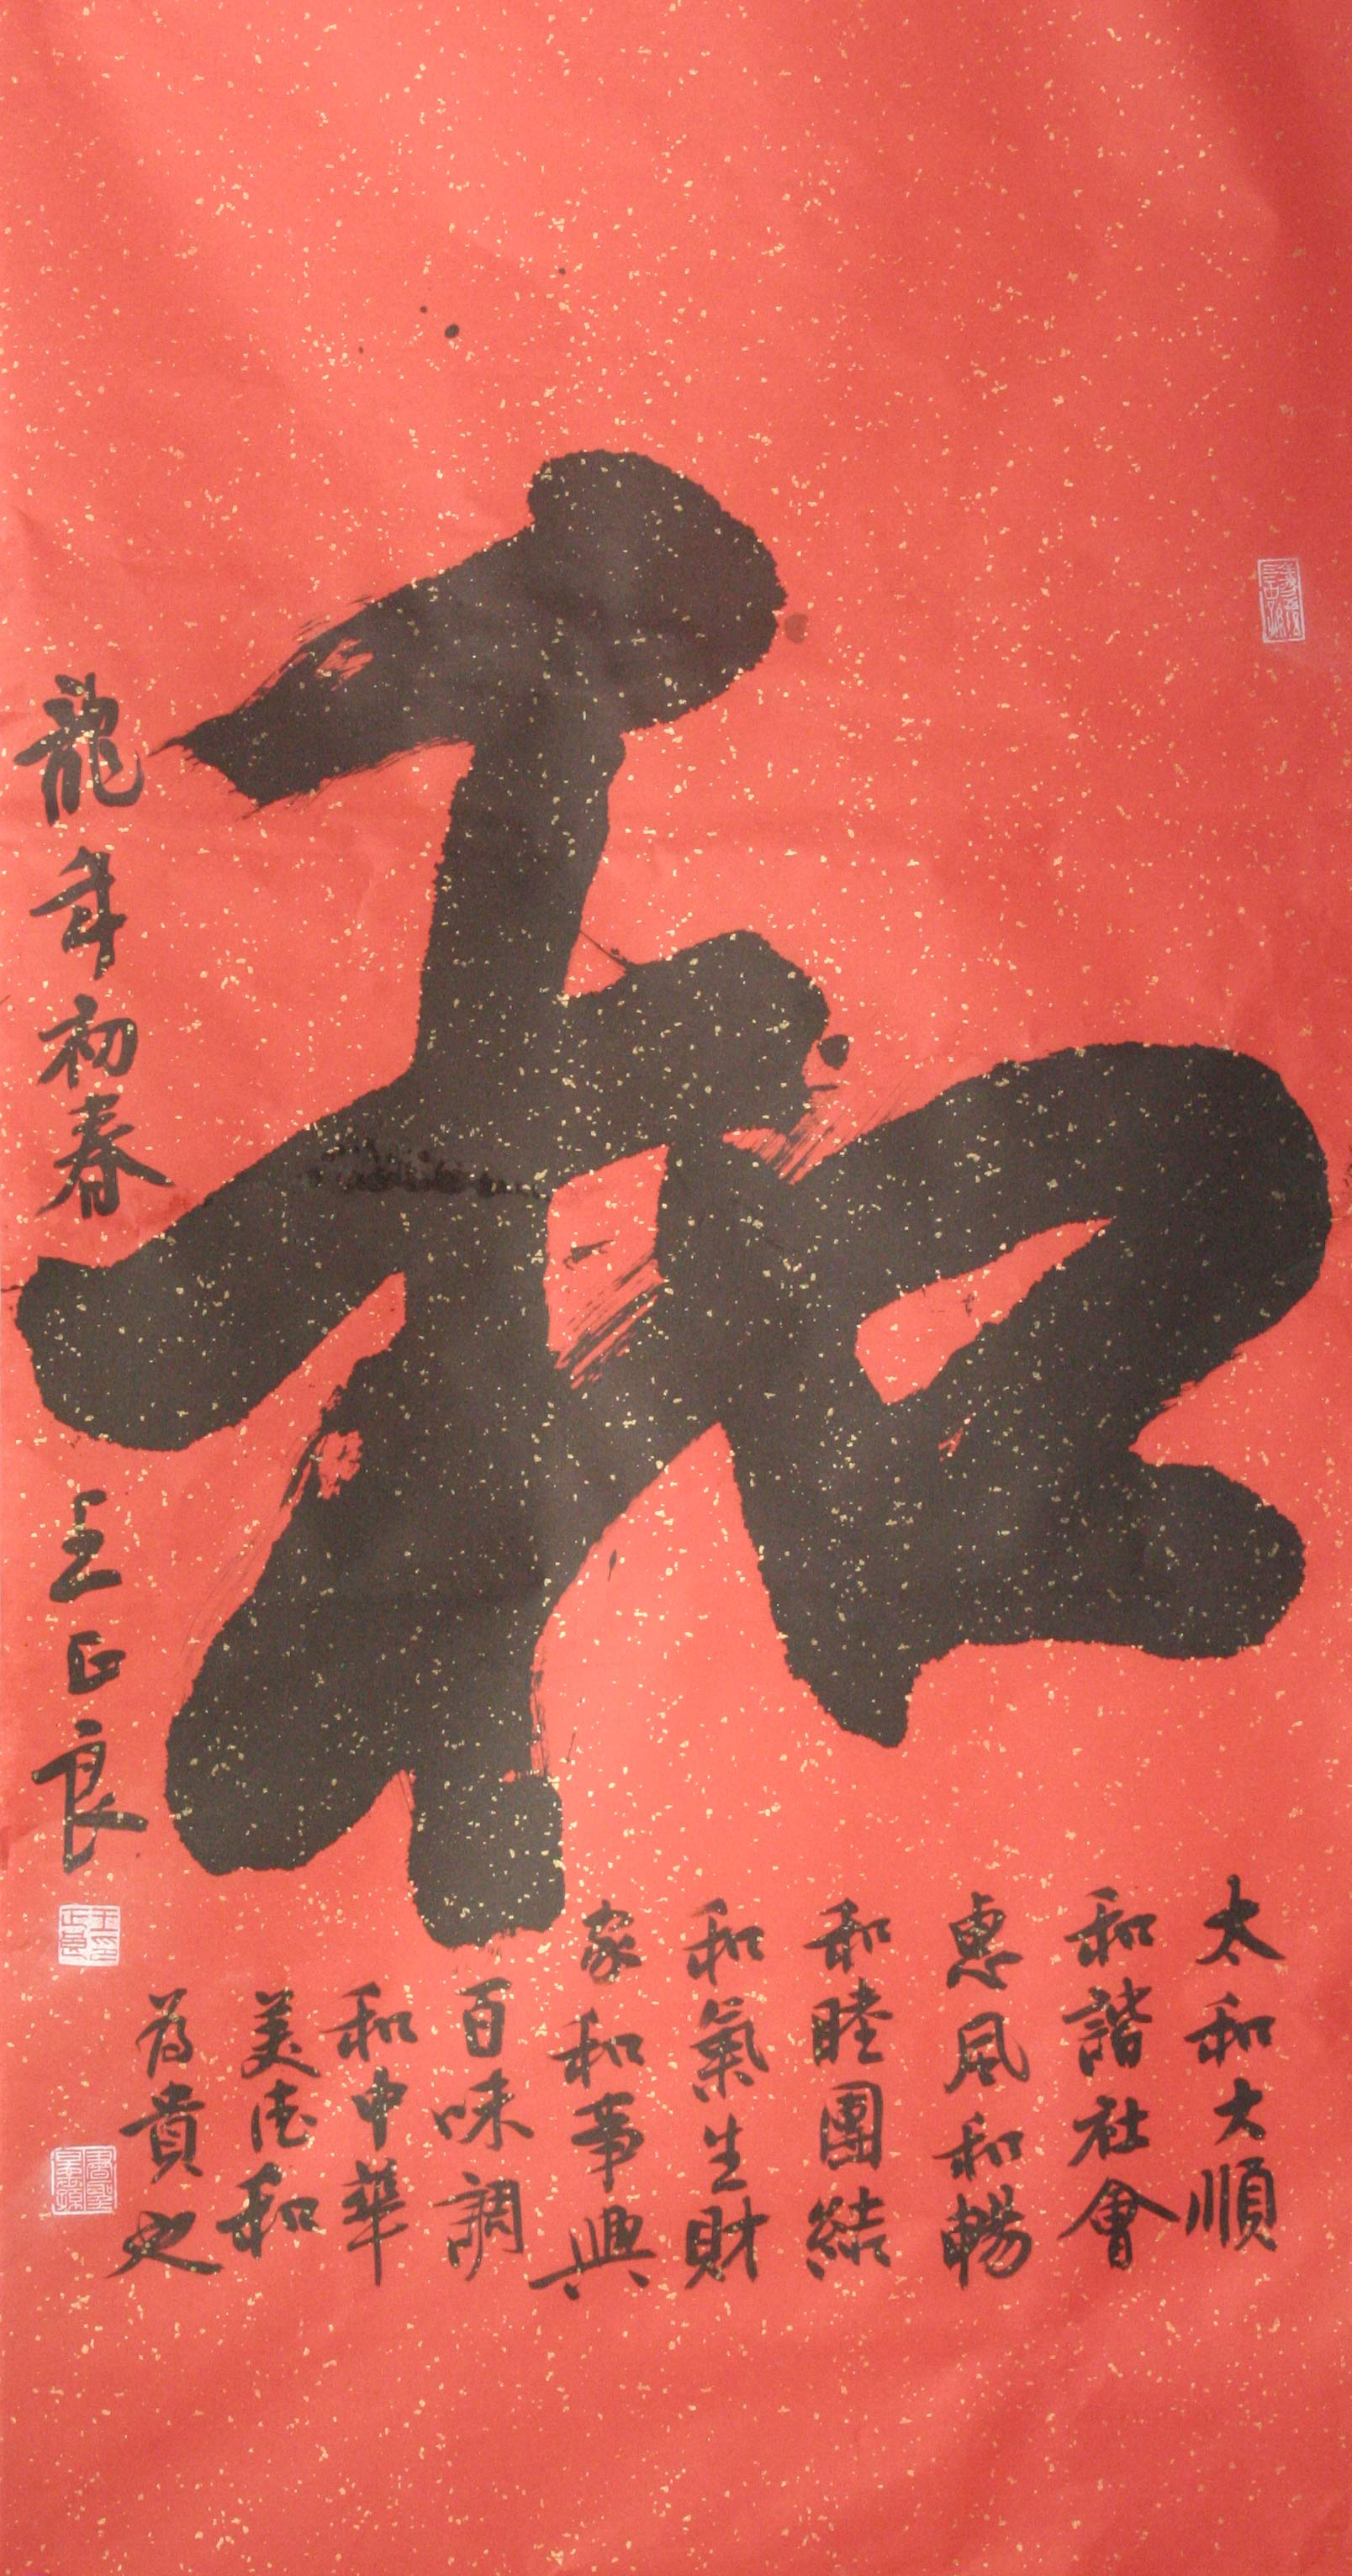 和
太和大順
和諧社會
惠風和暢
和睦團結
和氣生財
家和事興
百味調
和中華
美德和
為貴也
龍年初春
王正良
王正良印